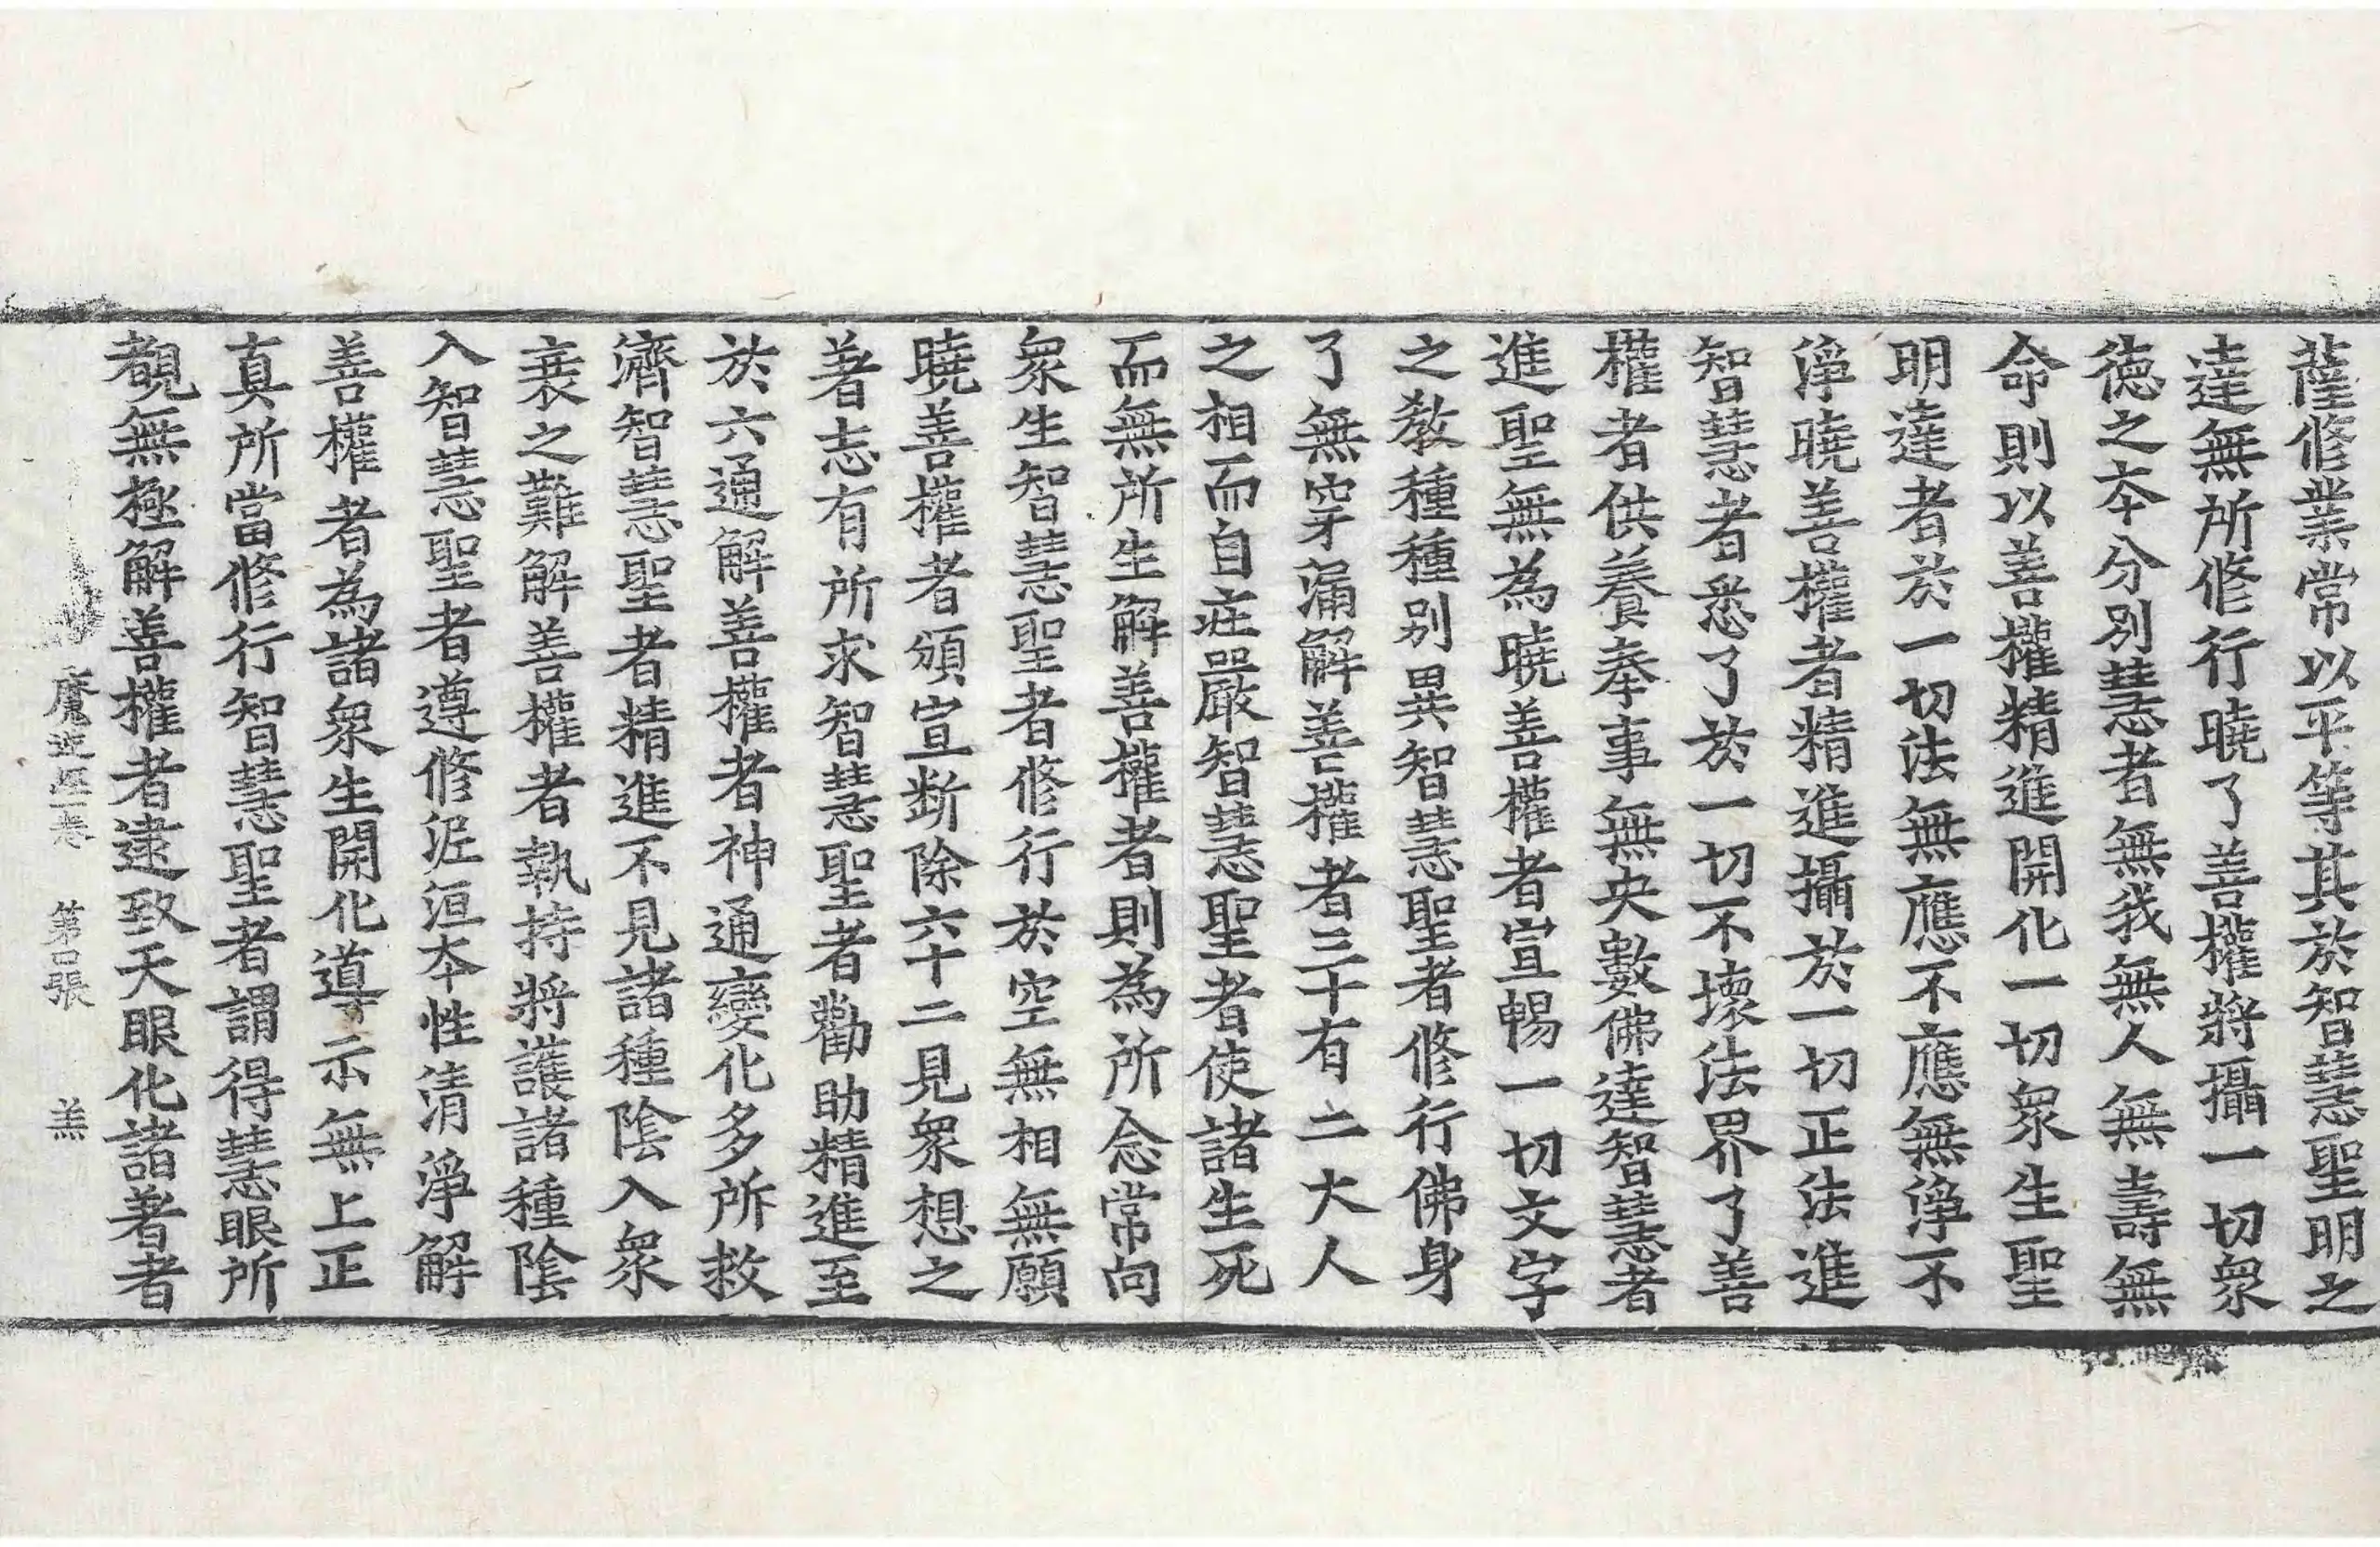 薩修業常以平等其於智慧聖明之
達無所修行曉了善權將攝一切衆
德之本分別慧者無我無人無壽無
命則以善權精進開化一切衆生聖
明達者於一切法無應不應無淨不
淨曉善權者精進攝於一切正法進
智慧者悉了於一切不壞法界了善
權者供養奉事無央數佛達智慧者
進聖無為曉善權者宣暢一切文字
之教種種別異智慧聖者修行佛身
了無穿漏解善權者三十有二大人
之相而自莊嚴智慧聖者使諸生死
而無所生解善權者則為所念常向
衆生智慧聖者修行於空無相無願
曉善權者頒宣断除六十二見衆想之
著志有所求智慧聖者勸助精進至
於六通解善權者神通變化多所救
濟智慧聖者精進不見諸種陰入衆
衰之難解善權者執持將護諸種陰
入智慧聖者遵修泥洹本性清淨解
善權者為諸衆生開化導示無上正
真所當修行智慧聖者謂得慧眼所
覩無極解善權者逮致天眼化諸著者
魔逆經一卷　第口張　羔